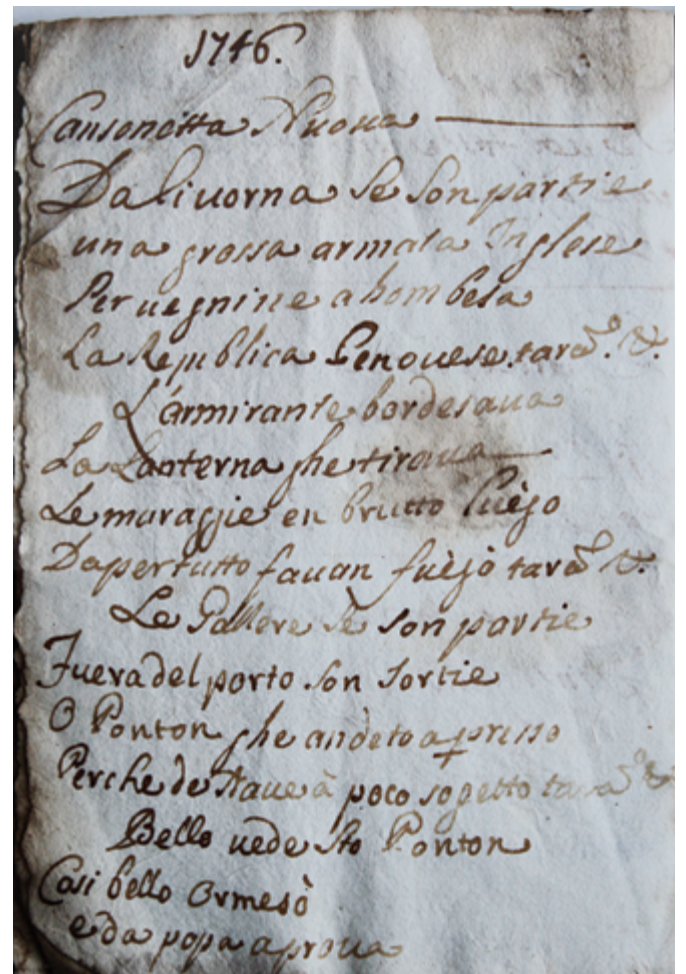 1746.
Cansonetta Nuoua
Da Liuorna se son partie
una grossa armata Inglese
Per uegnine a bombesa
La Republica Genouese. tara. &.
L'armirante bordesaua
La Lanterna ghe tiraua
Le muragge en brutto luègo
Dapertutto fauan fuègò tara &.
Le Gallere se son partie
Fuera del porto son sortie
O Ponton ghe andeto apresso
Perche de Naue à poco sogetto tara &
Bello uede sto Ponton
Cosi bello Ormesò
e da popa a proua